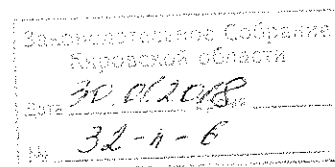 Законодательное Собрание
Кировской области
Дата 30.01.2018
№ 32-п-6